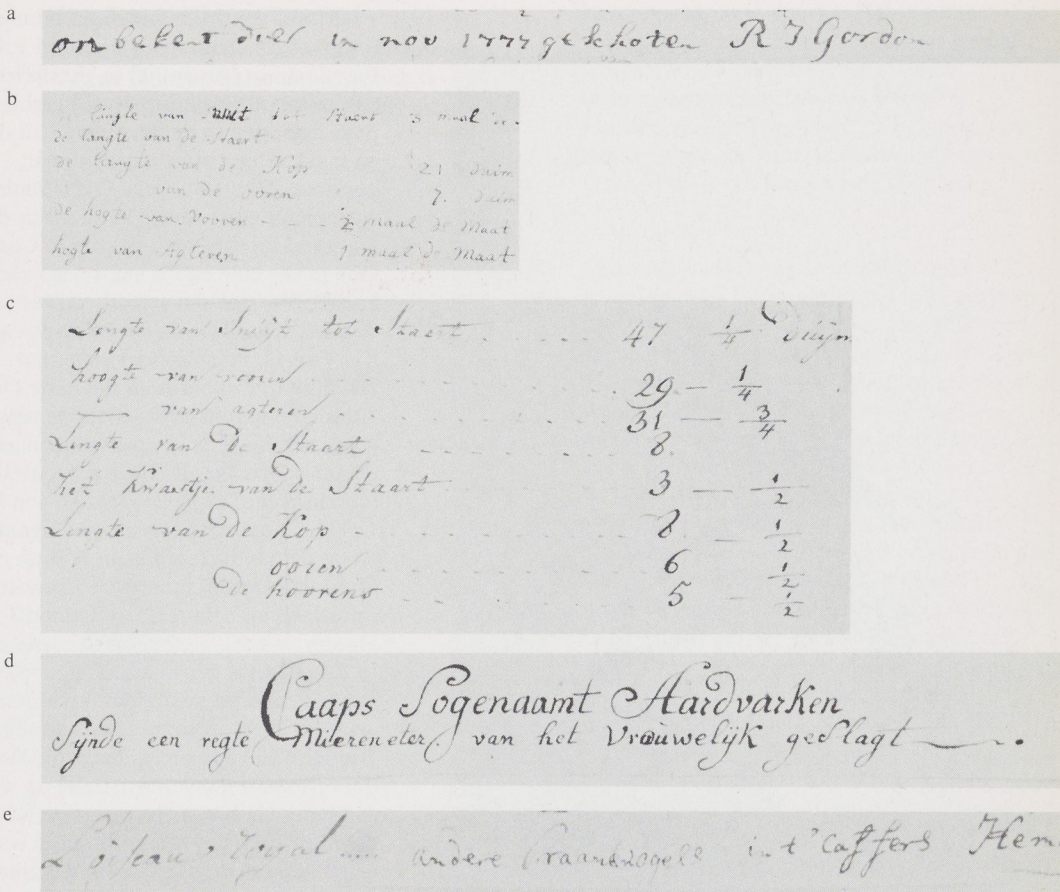 a
onbekent dier in nov 1777 geschoten R J Gordon
b
lingte van snuit tot Staert 3 maal
de langte van de Staert
de lengte van de Kop 21 duim
van de ooren 7. duim
de hogte van vooren - - - 2 maal de Maat
hogte van Agteren 1 maal de Maat
c
Lengte van Snuÿt tot Staart . . . . . . 47 1/4 duÿm
hoogte van vooren . . . . . . 29 — 1/4
— van agteren . . . . . . 31 — 3/4
Lengte van de Staart - - - - - - 8.
het Kwastje van de Staart 3 — 1/2
Lengte van de Kop - - - - 8 — 1/2
ooren . . . . 6 1/2
de hoorens - - - - 5 - 1/2
d
Caaps Sogenaamt Aardvarken
Sÿnde een regte Miereneter, van het Vrouwelÿk geslagt
e
L'oiseau royal andere Craanvogels in t' Caffers Hem